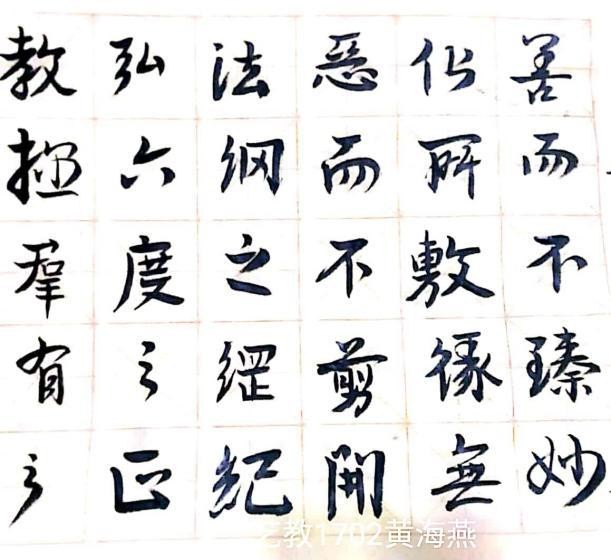 善而不臻妙
化所敷緣無
惡而不剪開
法網之綱紀
弘六度之正
教拯羣有之
艺教1702黄海燕